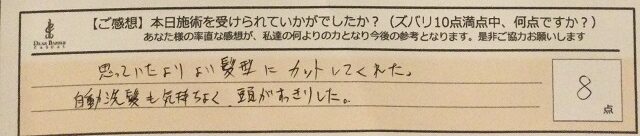 【ご感想】本日施術を受けられていかがでしたか？（ズバリ10点満点中、何点ですか？）
あなた様の率直な感想が、私達の何よりの力となり今後の参考となります。是非ご協力お願いします
DEAR BARBER
思っていたよりよい髪型にカットしてくれた。
自動洗髪も気持ちよく、頭がすっきりした。
8
点